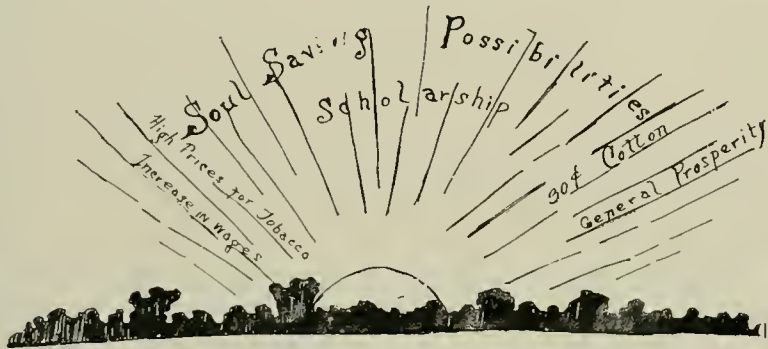 Soul Saving Possibilities
Scholarship
High Prices for Tobacco
Increase in Wages
30¢ Cotton
General Prosperity